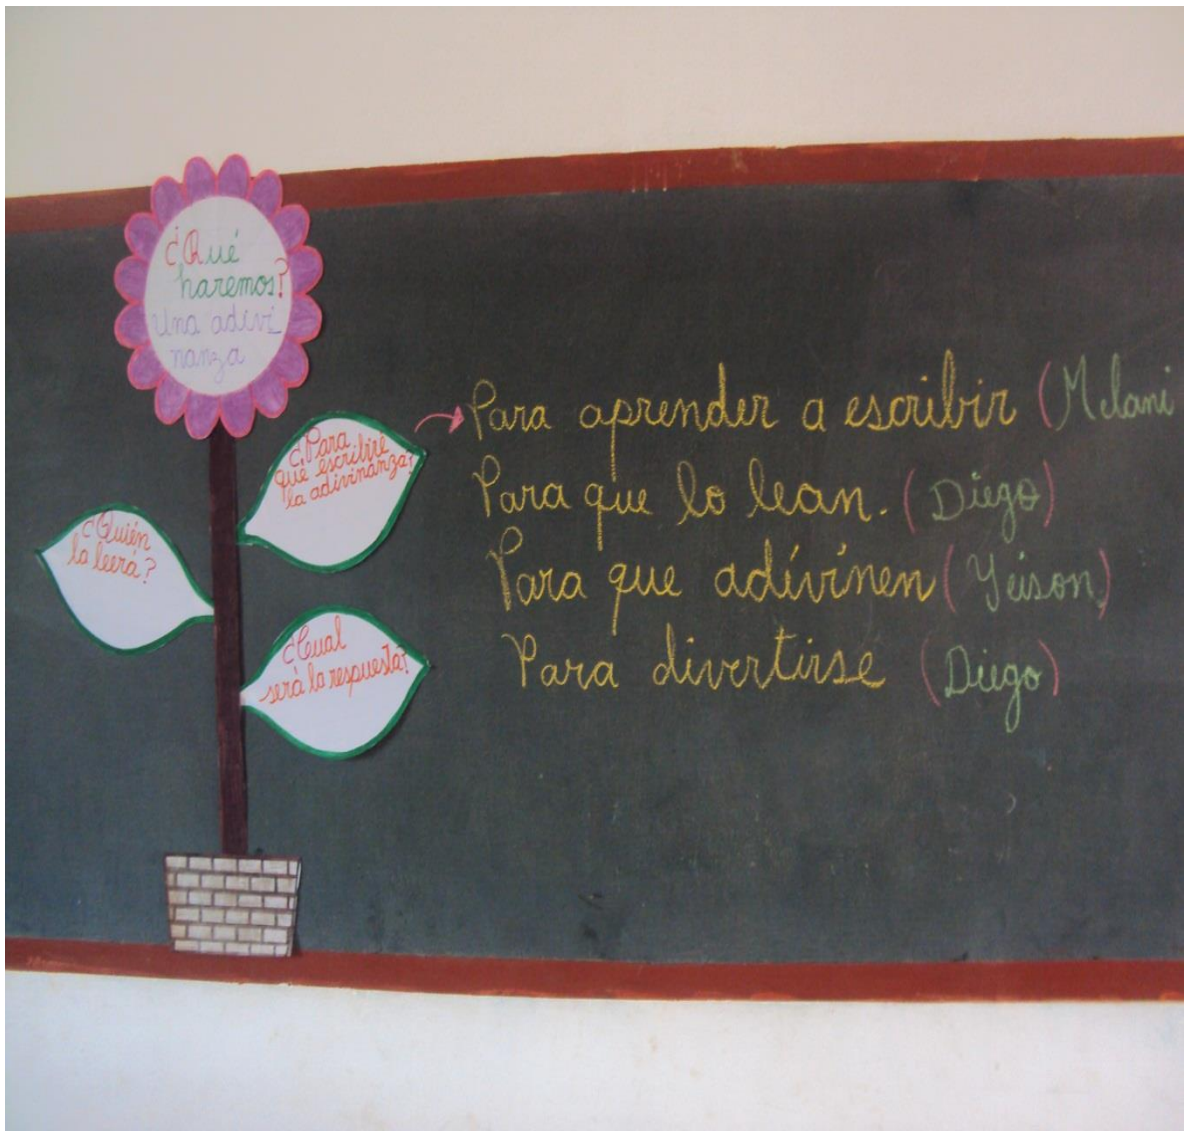 ¿Qué
haremos?
Una adivi
nanza
¿Para
qué escribiré
la adivinanza?
¿Quién
la leerá?
¿Cual
será la respuesta?
Para aprender a escribir (Melani
Para que lo lean. (Diego)
Para que adívínen (Yeison)
Para divertirse (Diego)